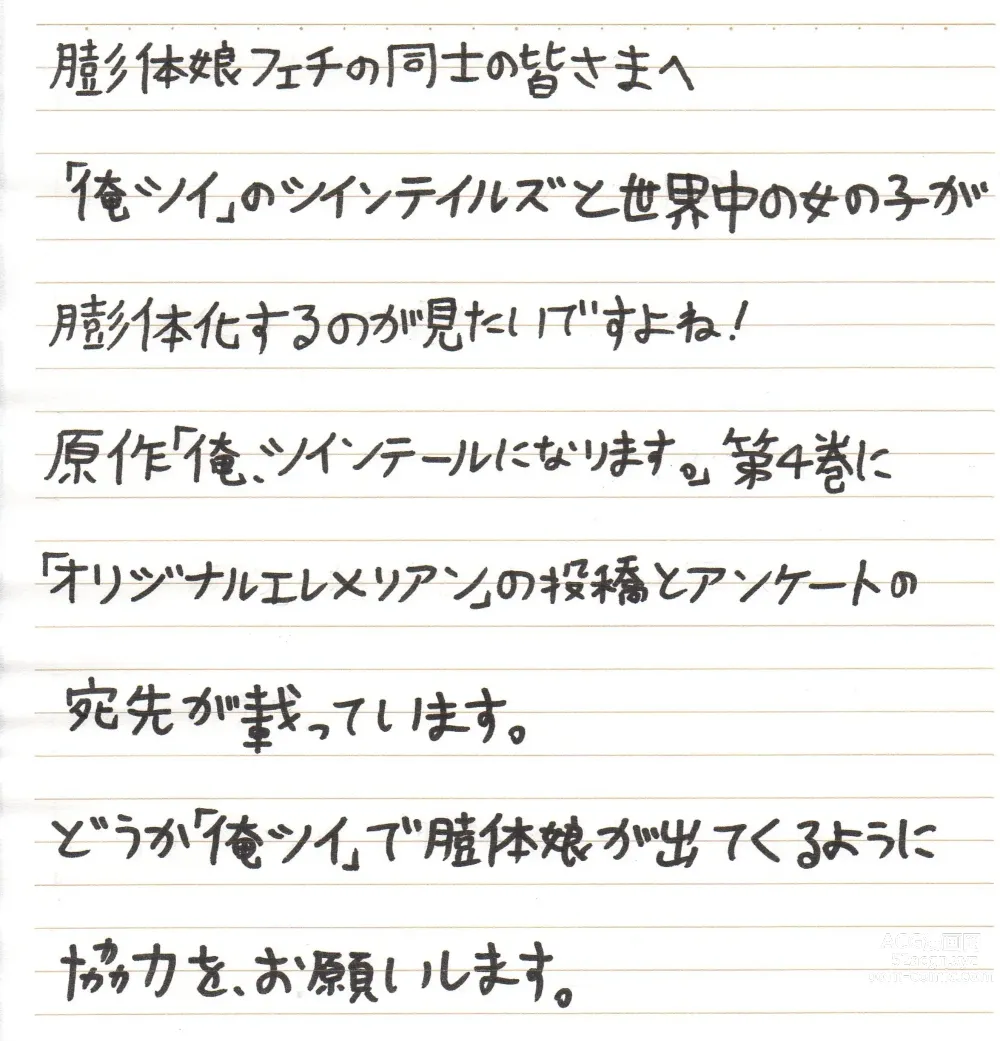 膨体娘フェチの同士の皆さまへ
「俺ツイ」のツインテイルズと世界中の女の子が
膨体化するのが見たいですよね!
原作「俺、ツインテールになります。」第4巻に
「オリジナルエレメリアン」の投稿とアンケートの
宛先が載っています。
どうか「俺ツイ」で膨体娘が出てくるように
協力を、お願いします。